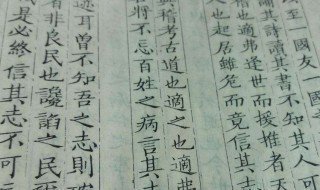 至一國友一國
誦其詩讀其書不知其人可
也適弗逢世而援推者天
人也起居雖危而竟信其志
稽考古道也適之也適弗
將不忘百姓之病言其志
述耳曾不知吾之志則
者非良民也讒諂之民
是必終信其志不可